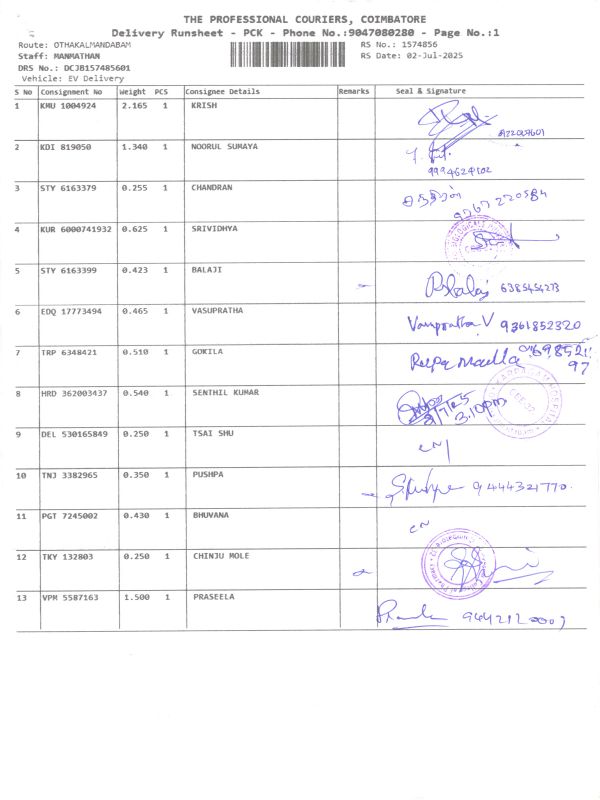 THE PROFESSIONAL COURIERS, COIMBATORE
Delivery Runsheet - PCK - Phone No.:9047080280 - Page No.:1
Route: OTHAKALMANDABAM RS No.: 1574856
Staff: MANMATHAN RS Date: 02-Jul-2025
DRS No.: DCJB157485601
Vehicle: EV Delivery
S No Consignment No Weight PCS Consignee Details Remarks Seal & Signature
1 KMU 1004924 2.165 1 KRISH
2 KDI 819050 1.340 1 NOORUL SUMAYA
9994624102
3 STY 6163379 0.255 1 CHANDRAN
9767220584
4 KUR 6000741932 0.625 1 SRIVIDHYA
5 STY 6163399 0.423 1 BALAJI
6385454273
6 EDQ 17773494 0.465 1 VASUPRATHA Vasupratha V 9361852320
7 TRP 6348421 0.510 1 GOKILA
97
8 HRD 362003437 0.540 1 SENTHIL KUMAR
3.10pm
9 DEL 530165849 0.250 1 TSAI SHU
10 TNJ 3382965 0.350 1 PUSHPA
9444321770
11 PGT 7245002 0.430 1 BHUVANA
12 TKY 132803 0.250 1 CHINJU MOLE
13 VPM 5587163 1.500 1 PRASEELA